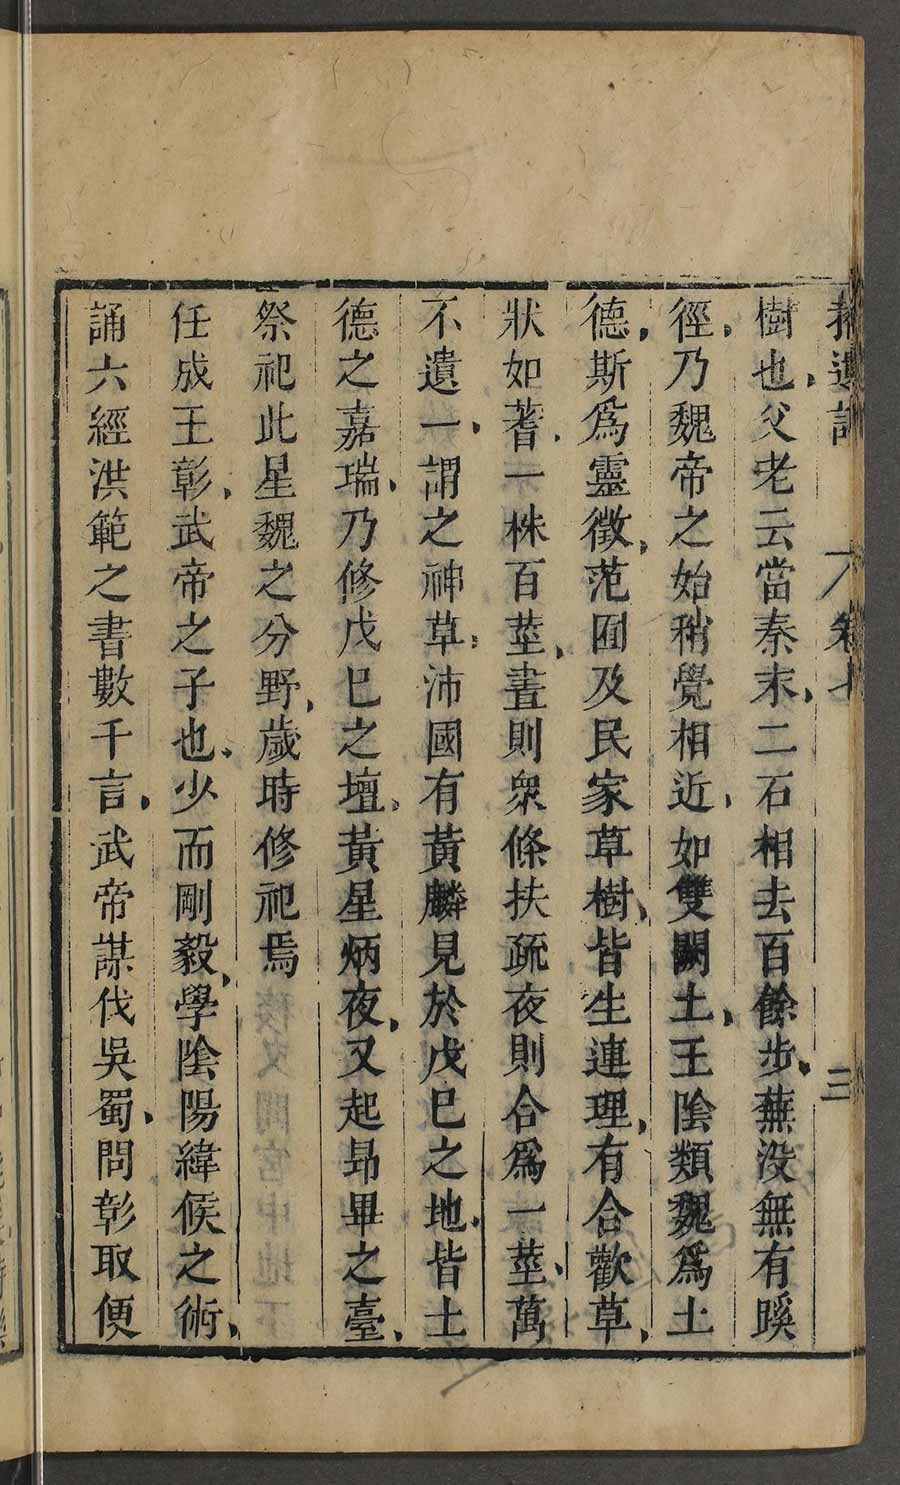 拾遺記　卷七　三
樹也父老云當秦末二石相去百餘步蕪没無有蹊
徑乃魏帝之始稍覺相近如雙闕土王陰類魏爲土
德斯爲靈徵苑囿及民家草樹皆生連理有合歡草
狀如蓍一株百莖晝則衆條扶疏夜則合爲一莖萬
不遺一謂之神草沛國有黃麟見於戊巳之地皆土
德之嘉瑞乃修戊巳之壇黃星炳夜又起昴畢之臺
祭祀此星魏之分野歲時修祀焉
任成王彰武帝之子也少而剛毅學陰陽緯候之術
誦六經洪範之書數千言武帝謀伐吳蜀問彰取便